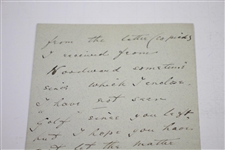 from the letter
I received from
Woodward sometime
since which I enclose
I have not seen
you left
but I hope you have
let the matter